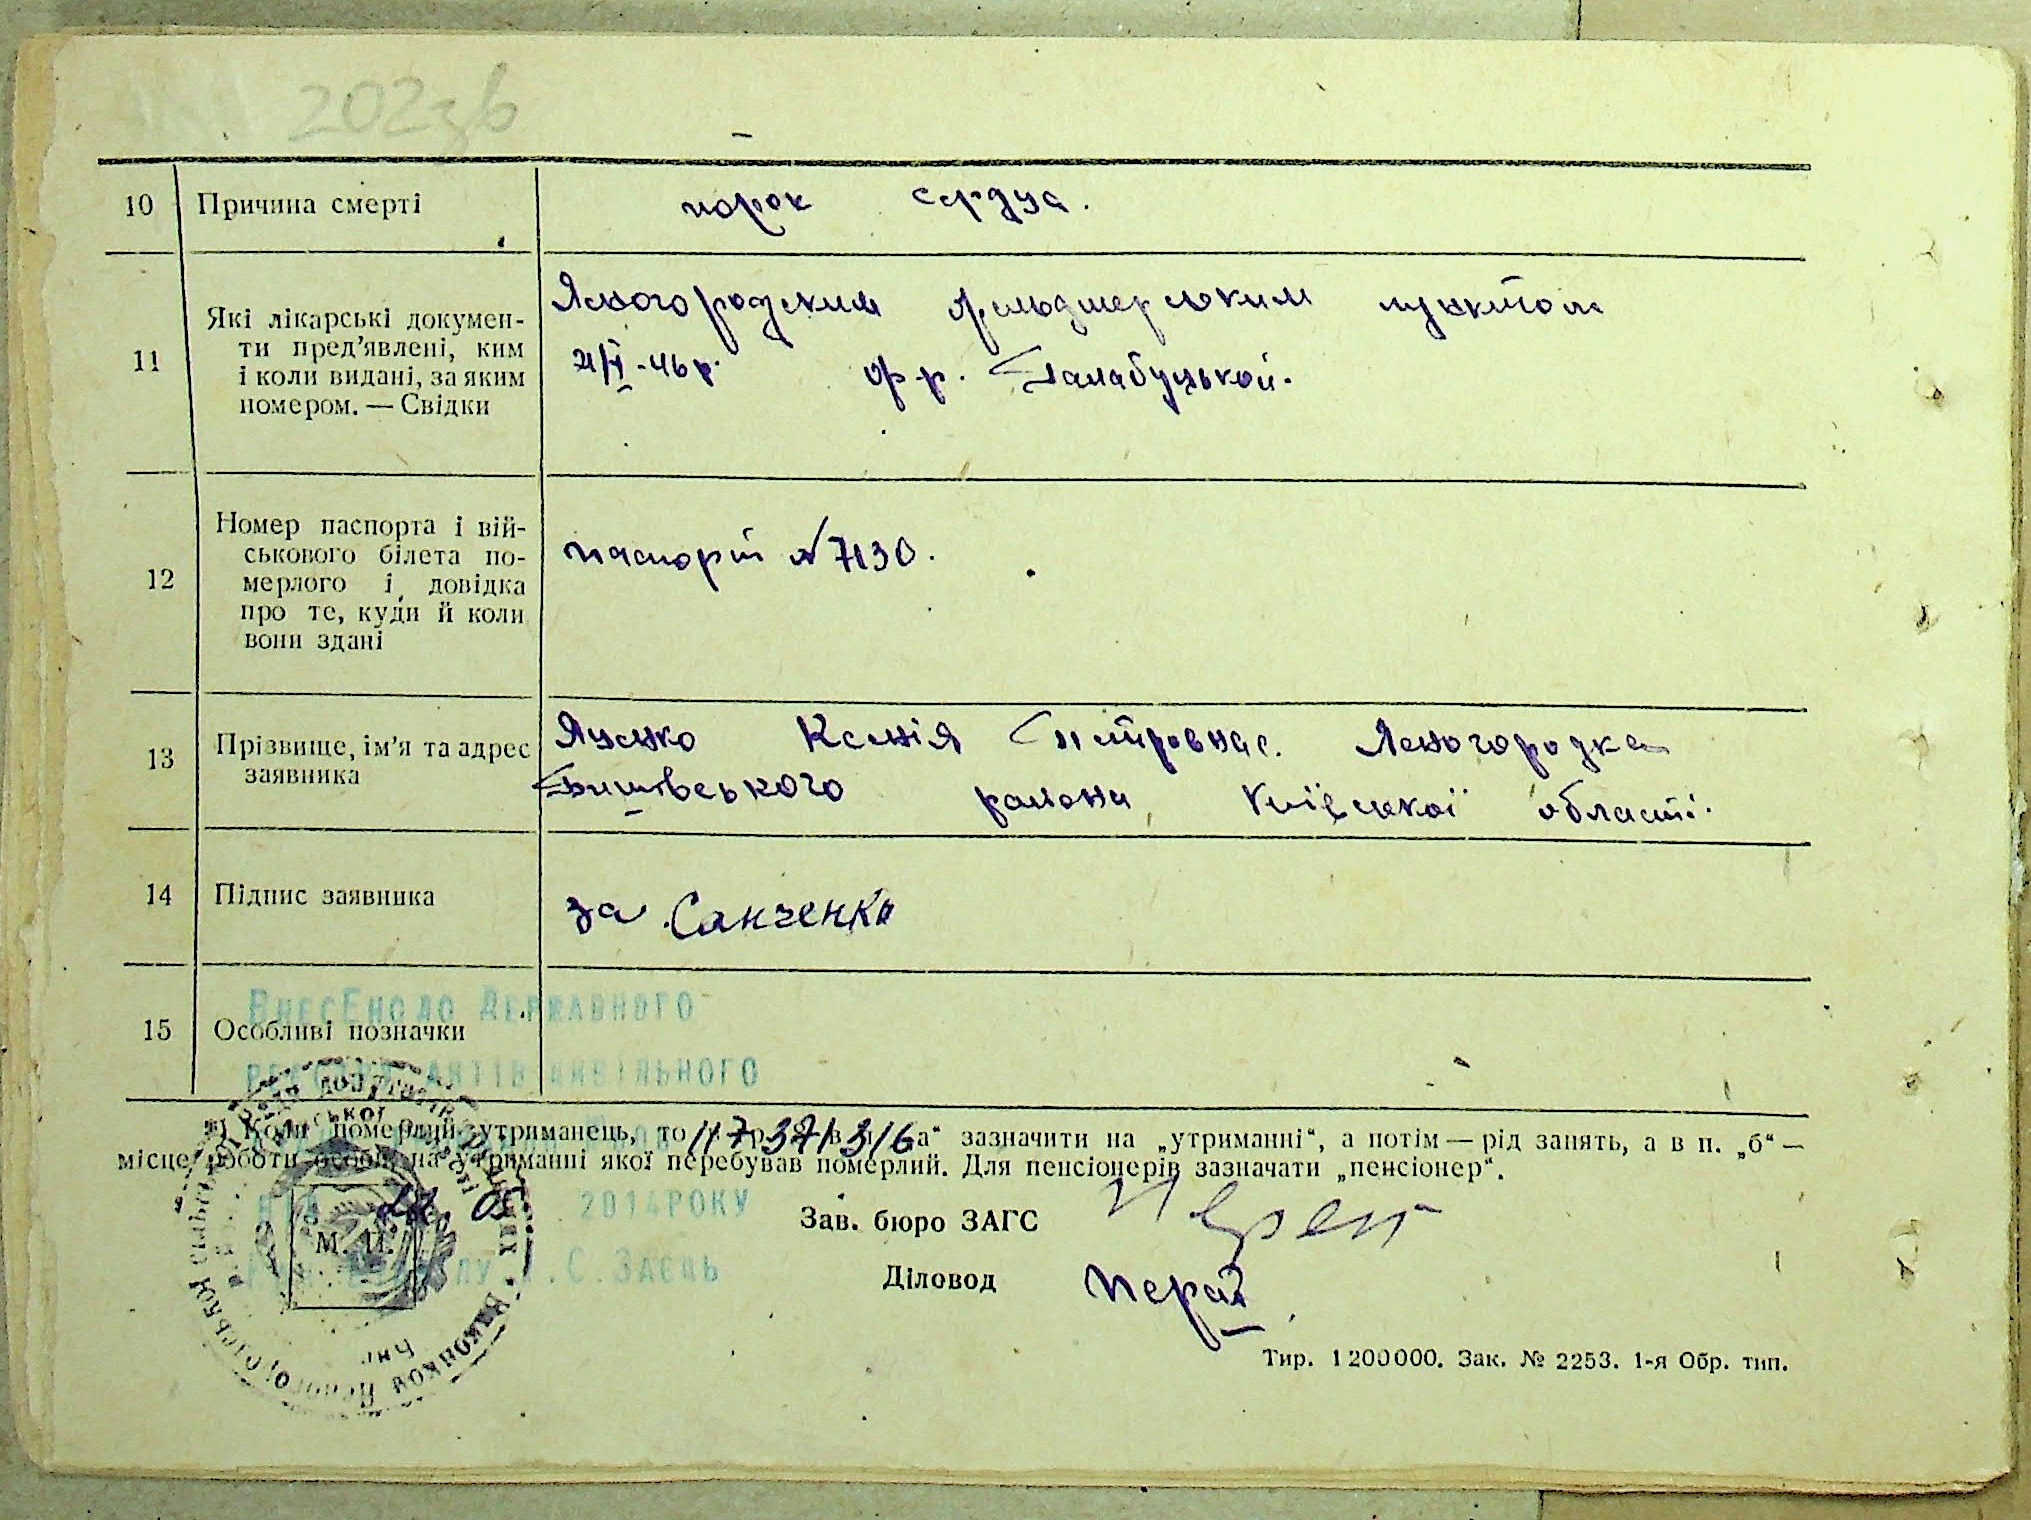 202зв
10 Причина смерті порок сердца.
11 Які лікарські документи пред'явлені, ким і коли видані, за яким номером. — Свідки
Ясногородским фельдшерським пунктом
фр.
12 Номер паспорта і військового білета померлого і довідка про те, куди й коли вони здані
паспорт № 7130.
13 Прізвище, ім'я та адрес заявника
Яценко Ксенія Петровна с. Ясногородка
Бишівського района Київської області.
14 Підпис заявника за Санченко
15 Особливі позначки
Внесено до Державного
реєстру актів цивільного
*) Коли померлий утриманець, то в п. „а“ зазначити на „утриманні“, а потім — рід занять, а в п. „б“ —
місце роботи особи, на утриманні якої перебував померлий. Для пенсіонерів зазначати „пенсіонер“.
05 2014 РОКУ
Зав. бюро ЗАГС
М. П.
С. Заєць
Діловод
Тир. 1200000. Зак. № 2253. 1-я Обр. тип.